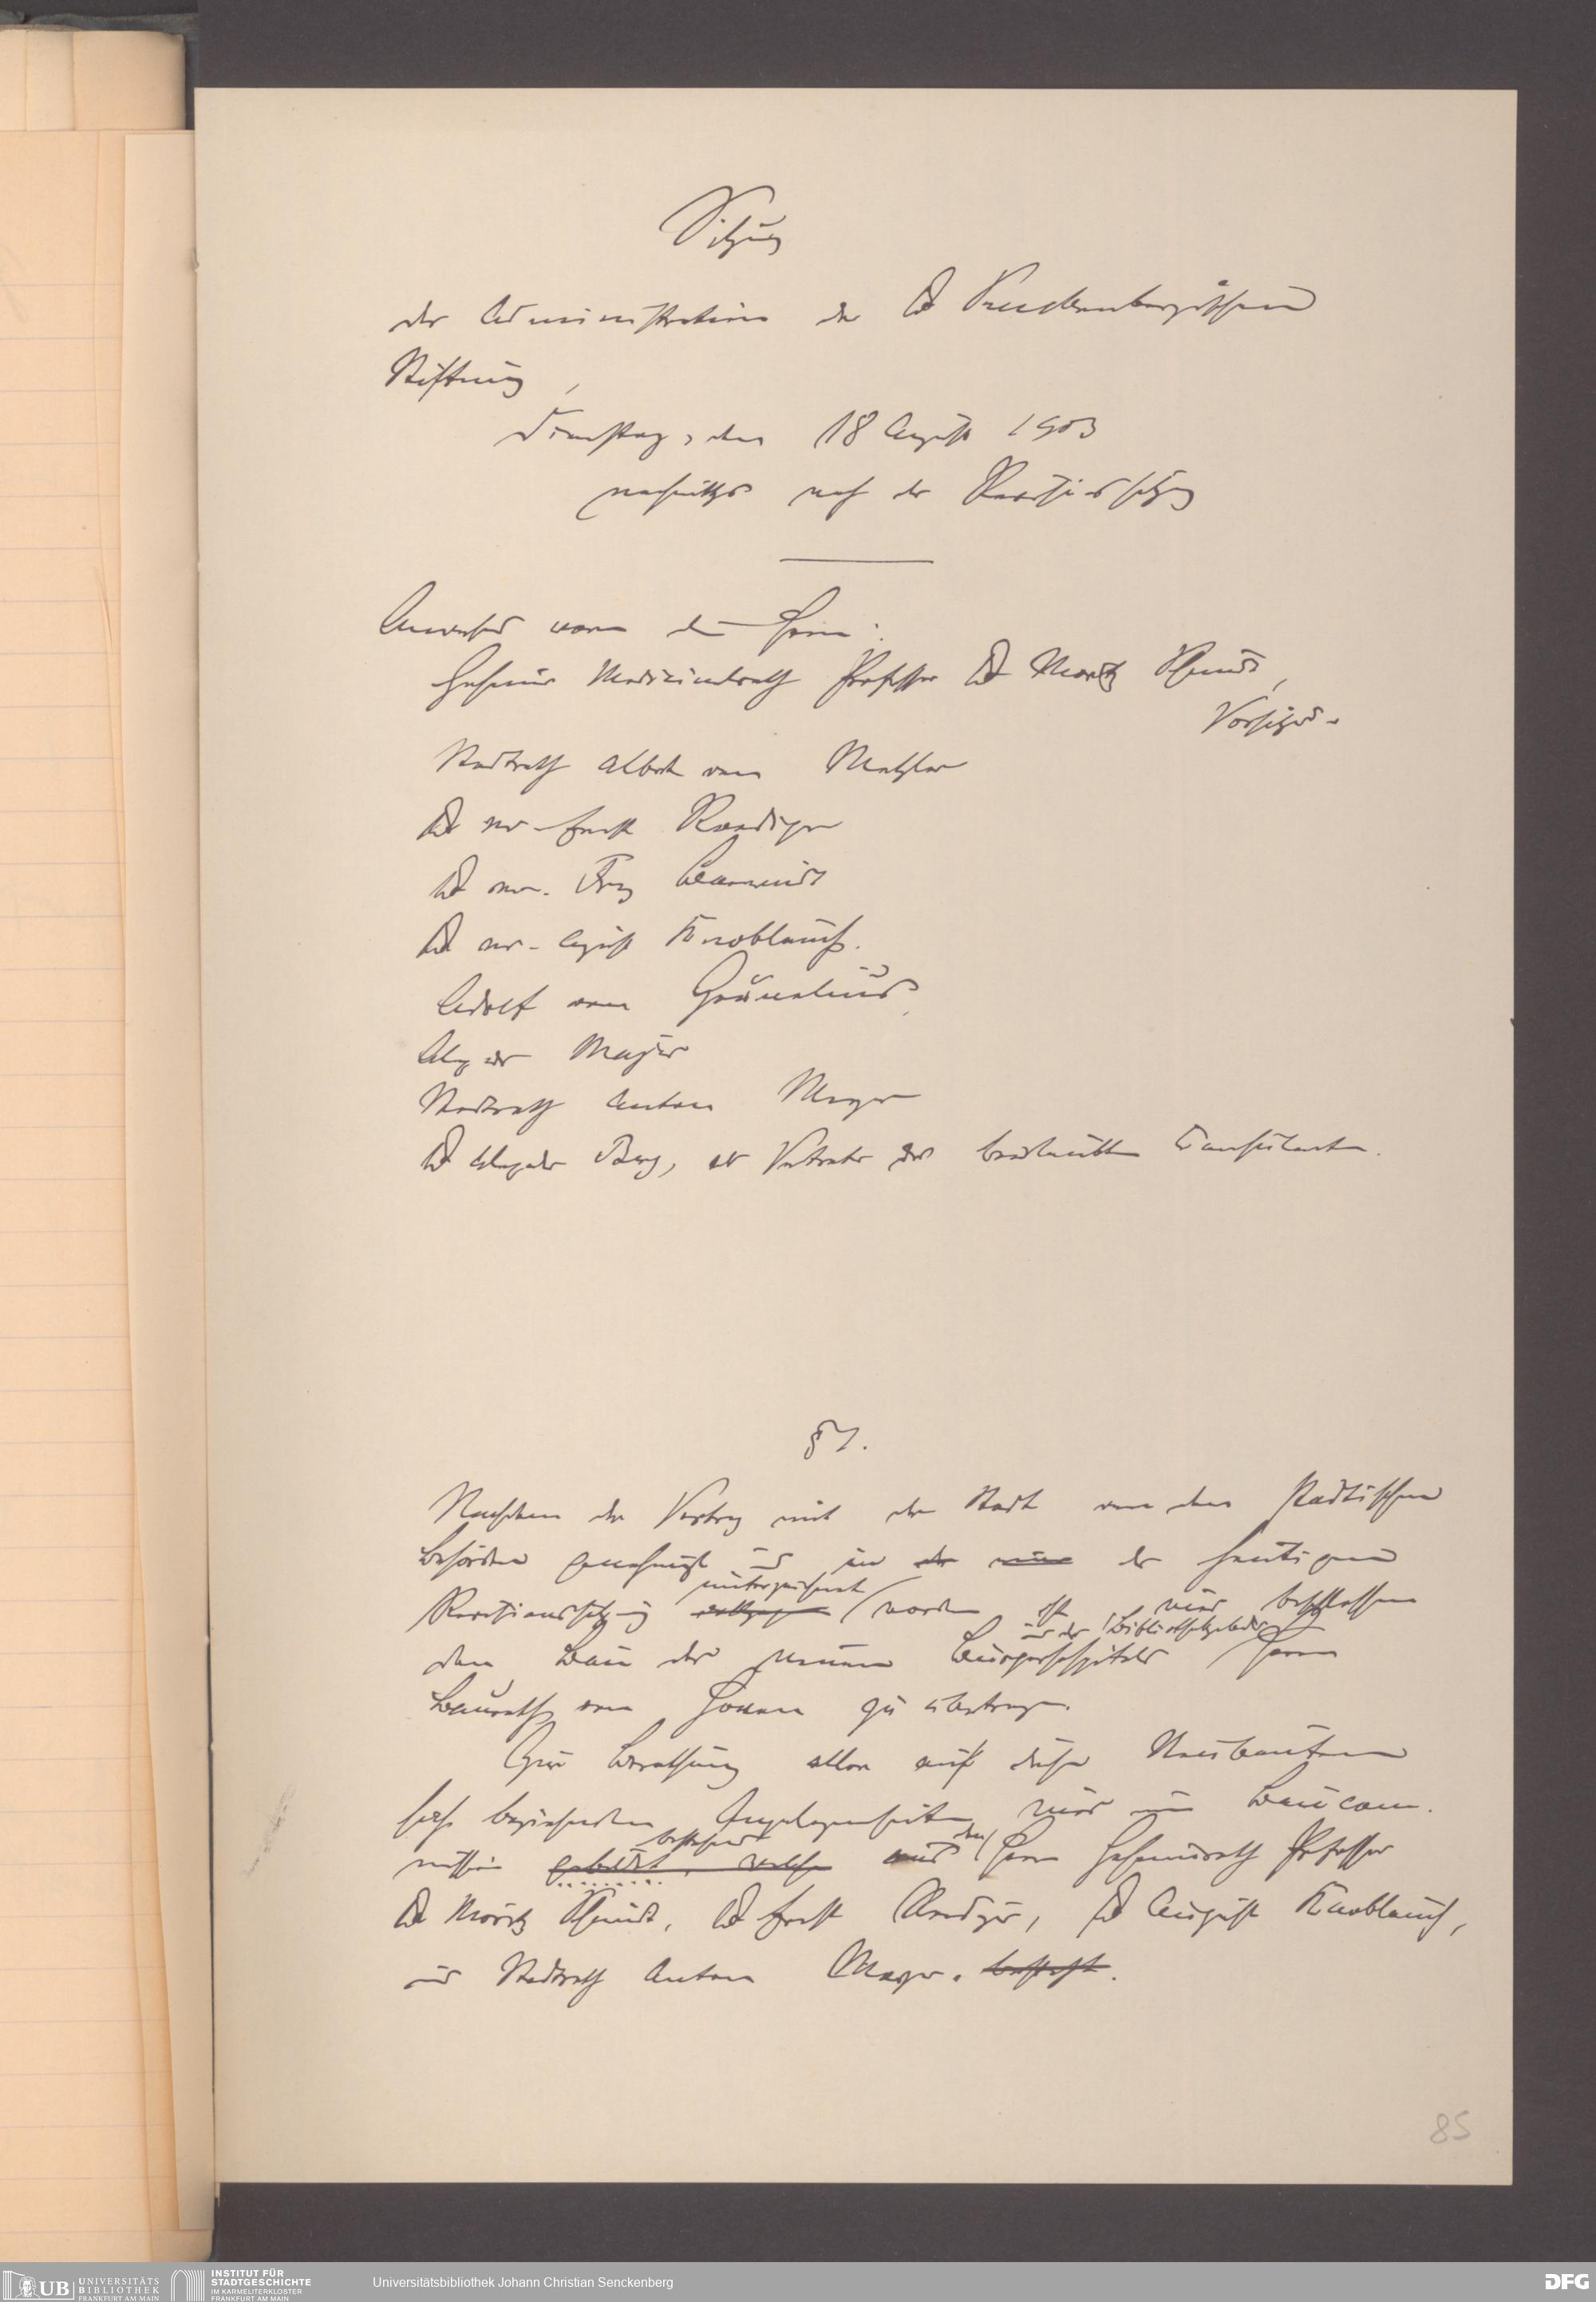 Sitzung
der Administration der Dr Senckenbergischen
Stiftung,
Dienstag, den 18 August 1903
nachmittags nach der Revisionssitzung
Anwesend waren die Herrn:
Geheimer Medicinalrath Professor Dr Moritz Schmidt,
Vorsitzend.
Stadtrath Albert von Metzler
Dr med. Ernst Roediger
Dr med.
Dr med. August Knoblauch.
Adolf von Grunelius,
Alexander Majer
Stadtrath Anton Meyer
Dr Alexander Berg, als Vertreter des beurlaubten Consulenten.
§ 1.
Nachdem der Vertrag mit der Stadt von den städtischen
Behörden genehmigt und in der der heutigen
unterzeichnet
Revisionssitzung worden ist, wird beschlossen
und der Bibliotheksgebäude
den Bau des neuen Bürgerhospitals Herrn
Baurath von Hoven zu übertragen.
Zur Berathung aller auf diese Neubauten
sich beziehenden Angelegenheiten wird eine Baucom-
bestehend den
mission gebildet, welche aus Herrn Geheimrath Professor
Dr Moritz Schmidt, Dr Ernst Roediger, Dr August Knoblauch,
und Stadtrath Anton Meyer. besteht.
85
UB UNIVERSITÄTS
BIBLIOTHEK
FRANKFURT AM MAIN
INSTITUT FÜR
STADTGESCHICHTE
IM KARMELITERKLOSTER
FRANKFURT AM MAIN
Universitätsbibliothek Johann Christian Senckenberg
DFG